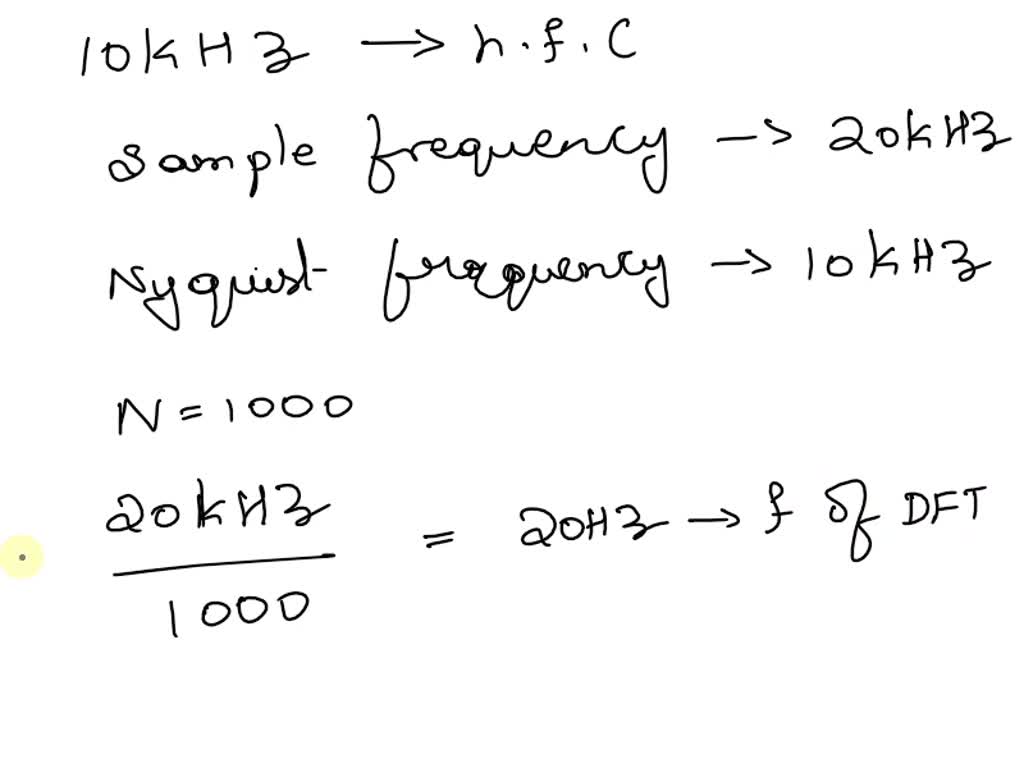 10kHz → h.f.C
Sample frequency → 20kHz
Nyquist frequency → 10kHz
N = 1000
20kHz
1000
= 20Hz → f of DFT